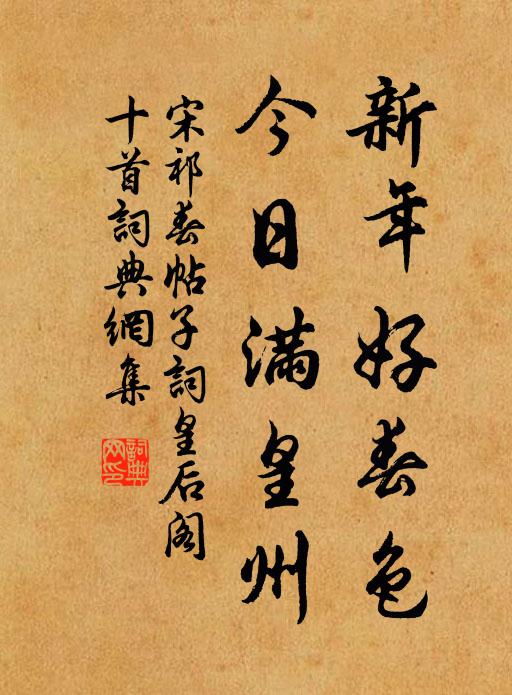 新年好春色
今日满皇州
宋祁春帖子詞皇后阁
十首詞典網集
詞典网印